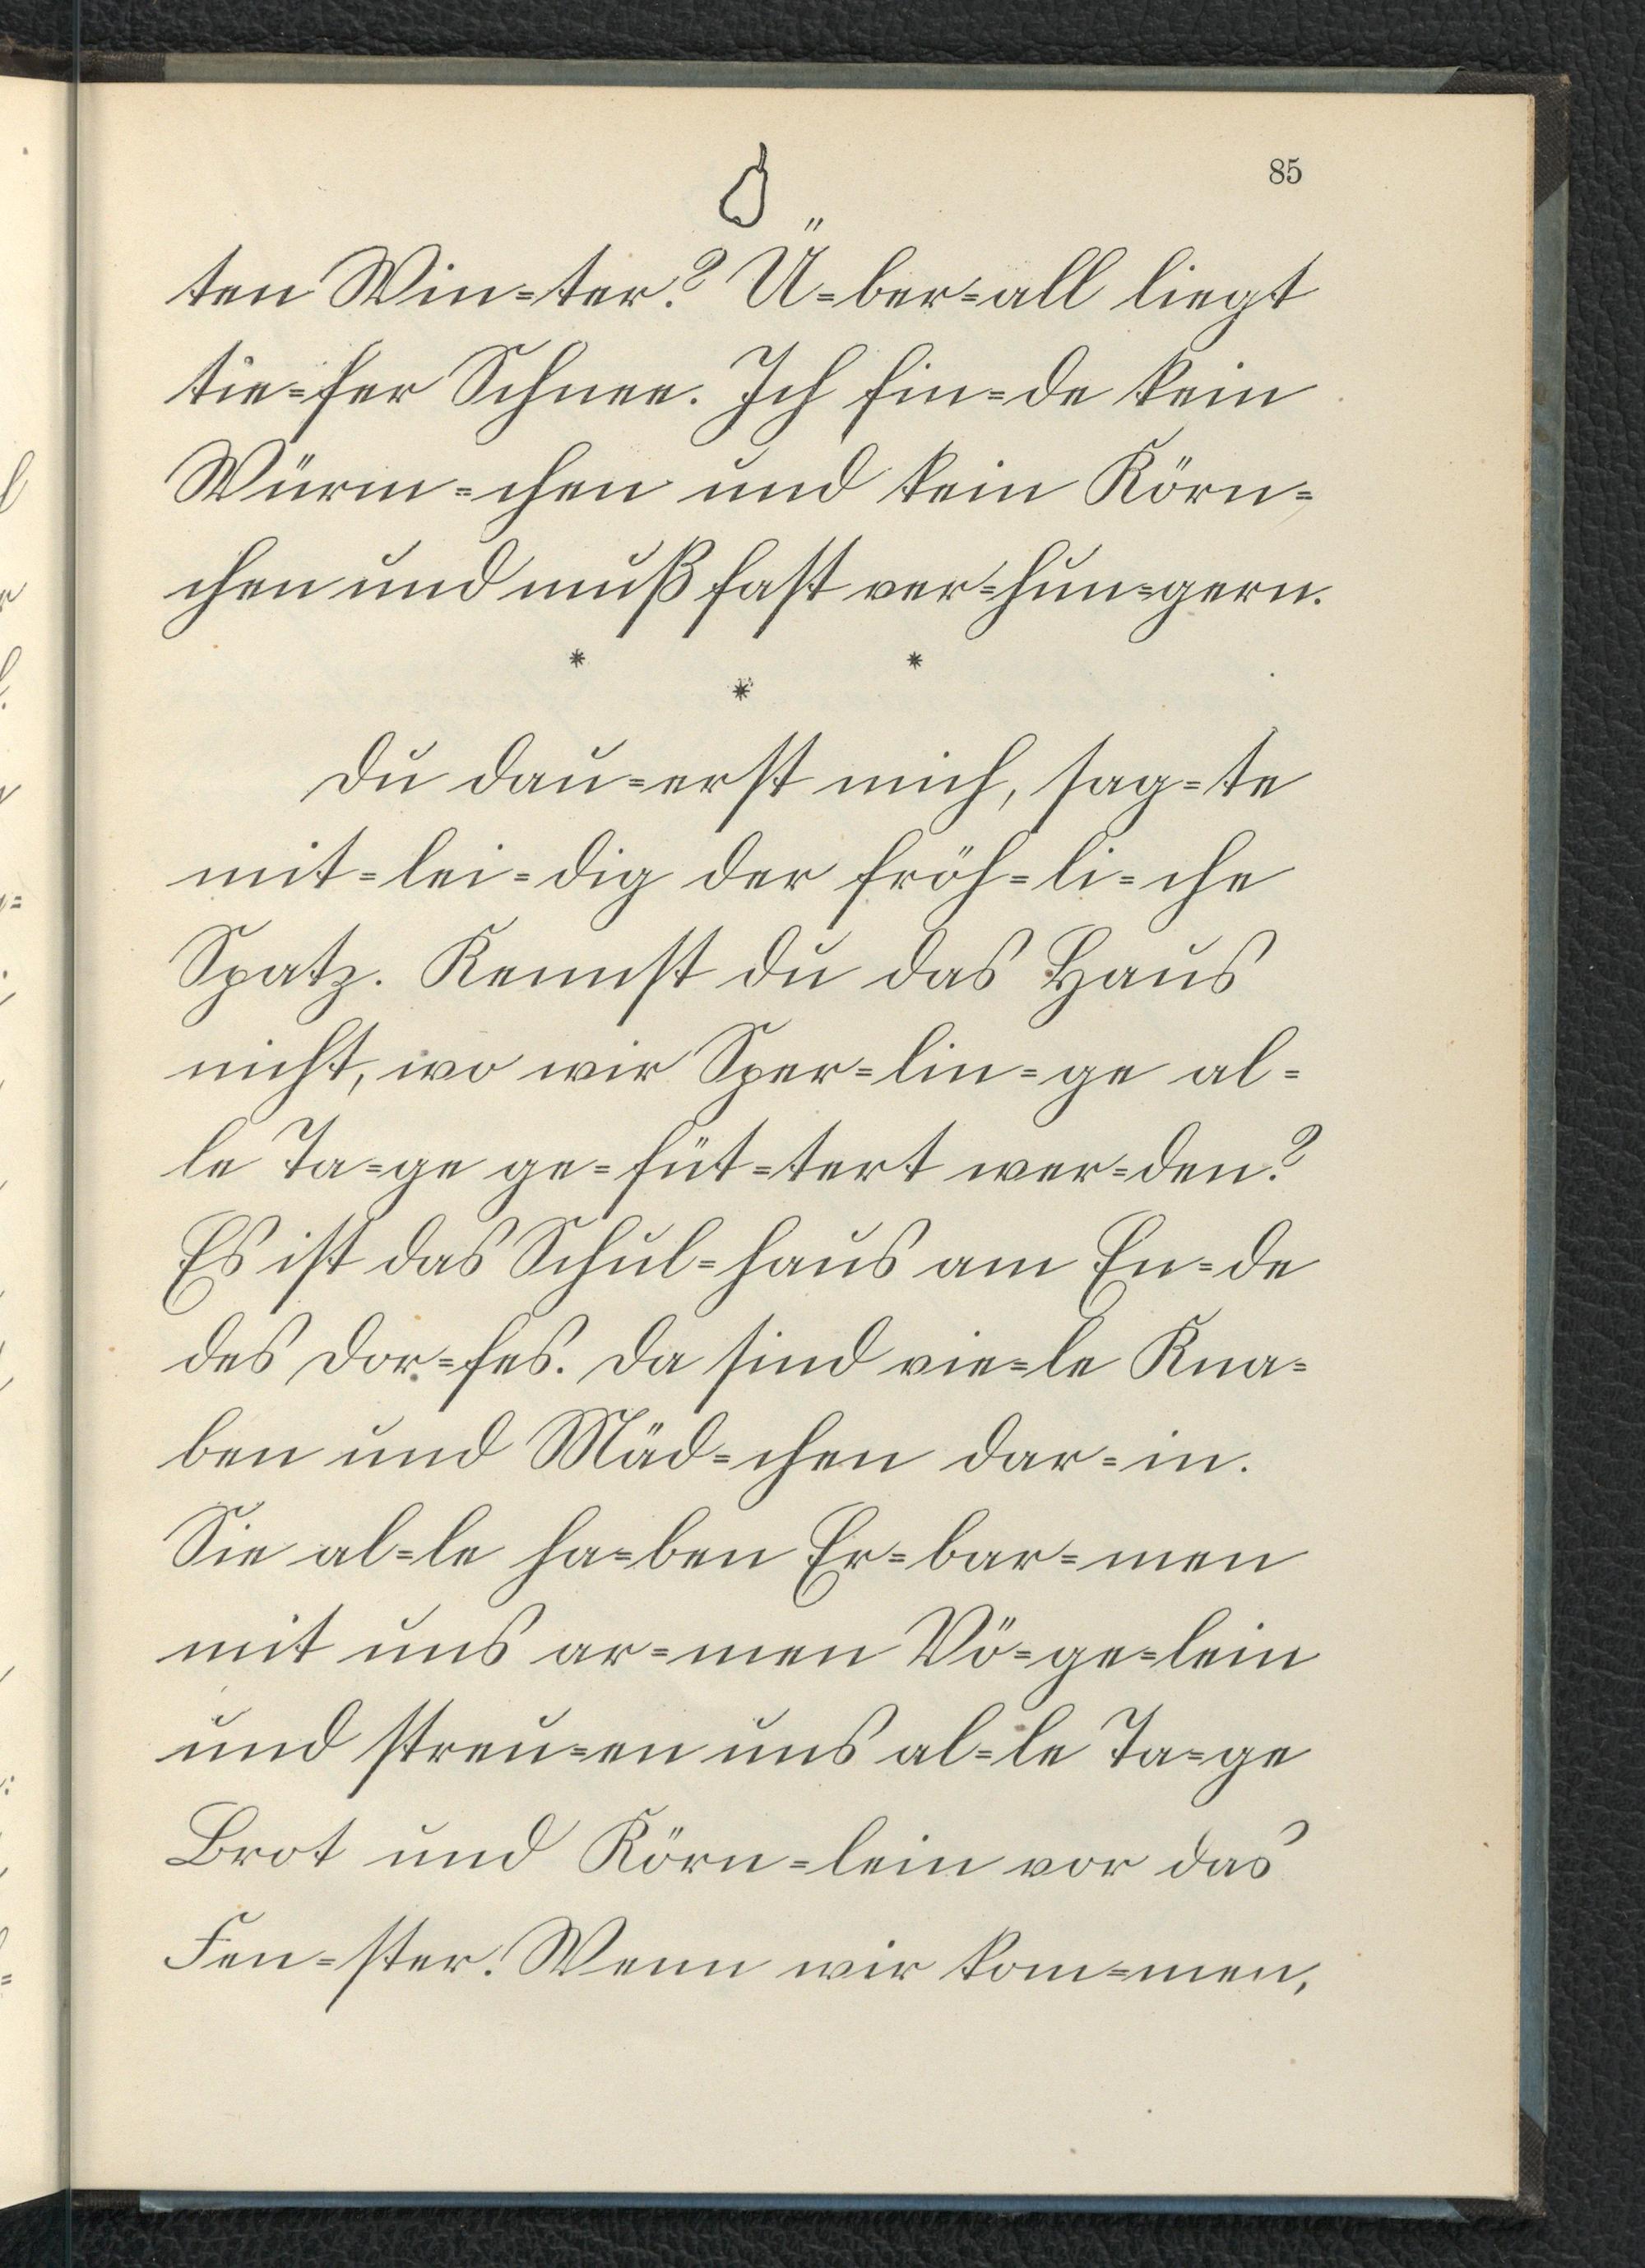 85
ten Win=ter? Ü=ber=all liegt
tie=fer Schnee. Ich fin=de kein
Würm=chen und kein Körn=
chen und muß fast ver=hun=gern.
* * *
Du dau=erst mich, sag=te
mit=lei=dig der fröh=li=che
Spatz. Kennst du das Haus
nicht, wo wir Sper=lin=ge al=
le Ta=ge ge=füt=tert wer=den?
Es ist das Schul=haus am En=de
des Dor=fes. Da sind vie=le Kna=
ben und Mäd=chen dar=in.
Sie al=le ha=ben Er=bar=men
mit uns ar=men Vö=ge=lein
und streu=en uns al=le Ta=ge
Brot und Körn=lein vor das
Fen=ster. Wenn wir kom=men,